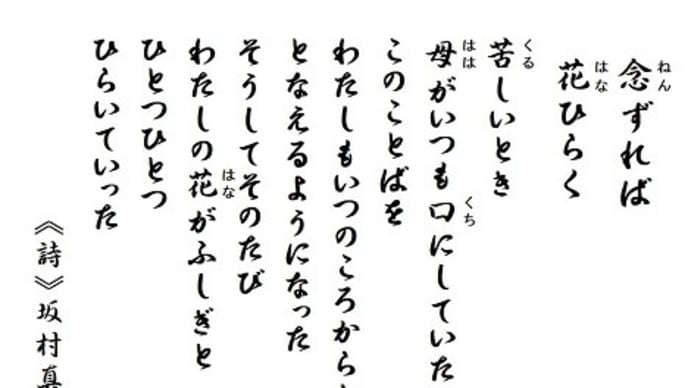 念ずれば
花ひらく
苦しいとき
母がいつも口にしていた
このことばを
わたしもいつのころから
となえるようになった
そうしてそのたび
わたしの花がふしぎと
ひとつひとつ
ひらいていった
《詩》坂村真